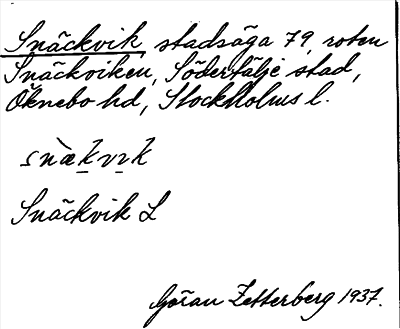 Snäckvik, stadsäga 79, roten
Snäckviken, Södertälje stad,
Öknebo hd, Stockholms l.
snæ̀kvɪk
Snäckvik L
Göran Zetterberg 1937.